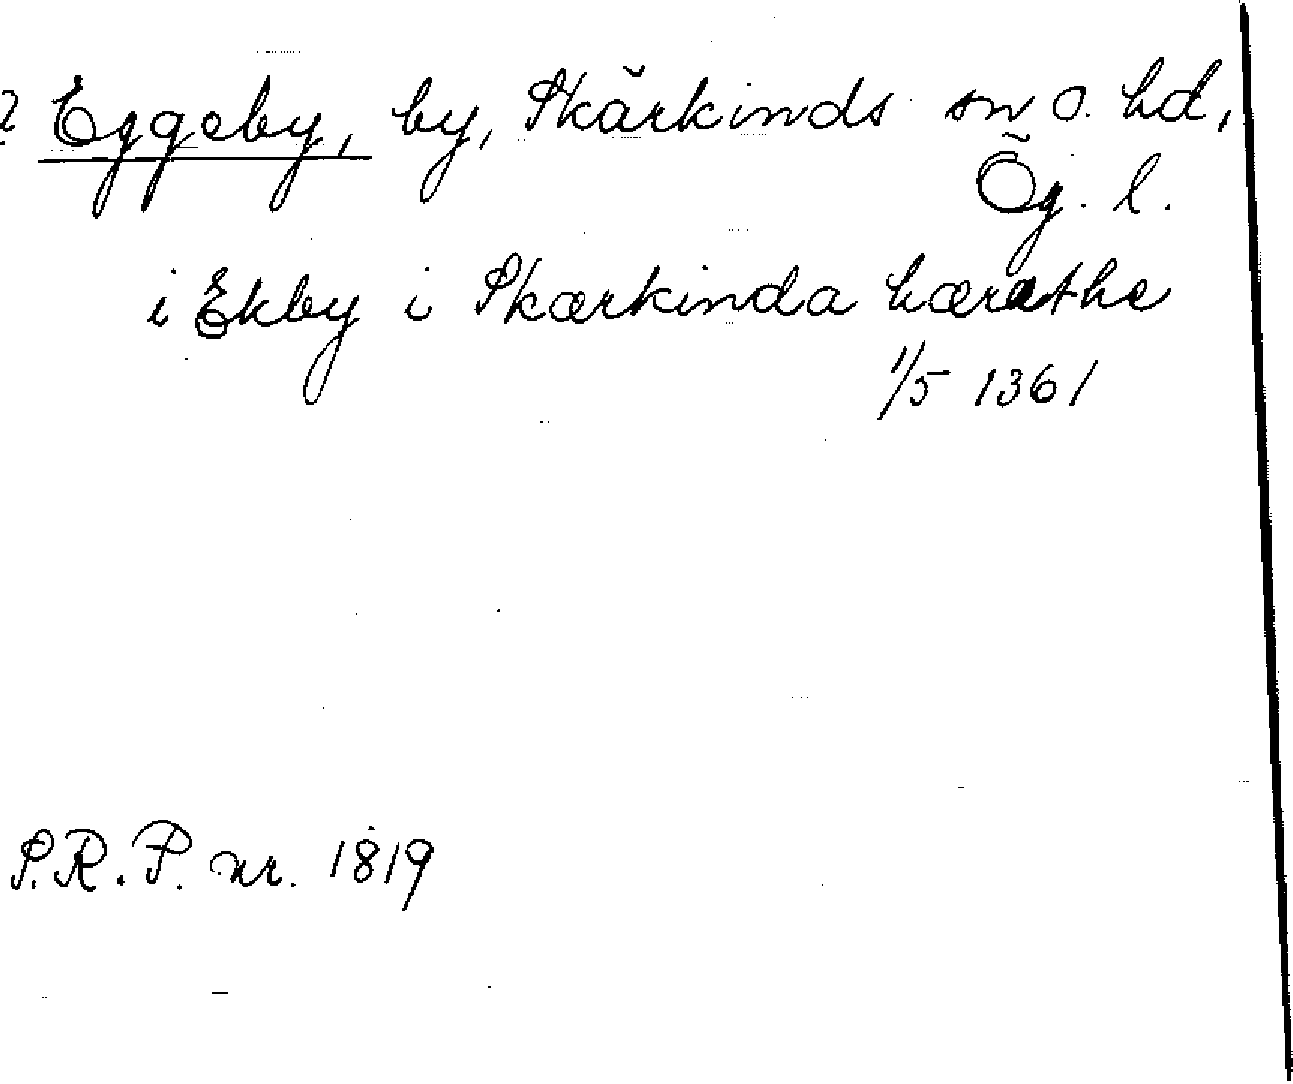 ? Eggeby, by, Skärkinds sn o. hd,
Ög. l.
i Ekby i Skærkinda hærathe
1/5 1361
S.R.P. nr. 1819